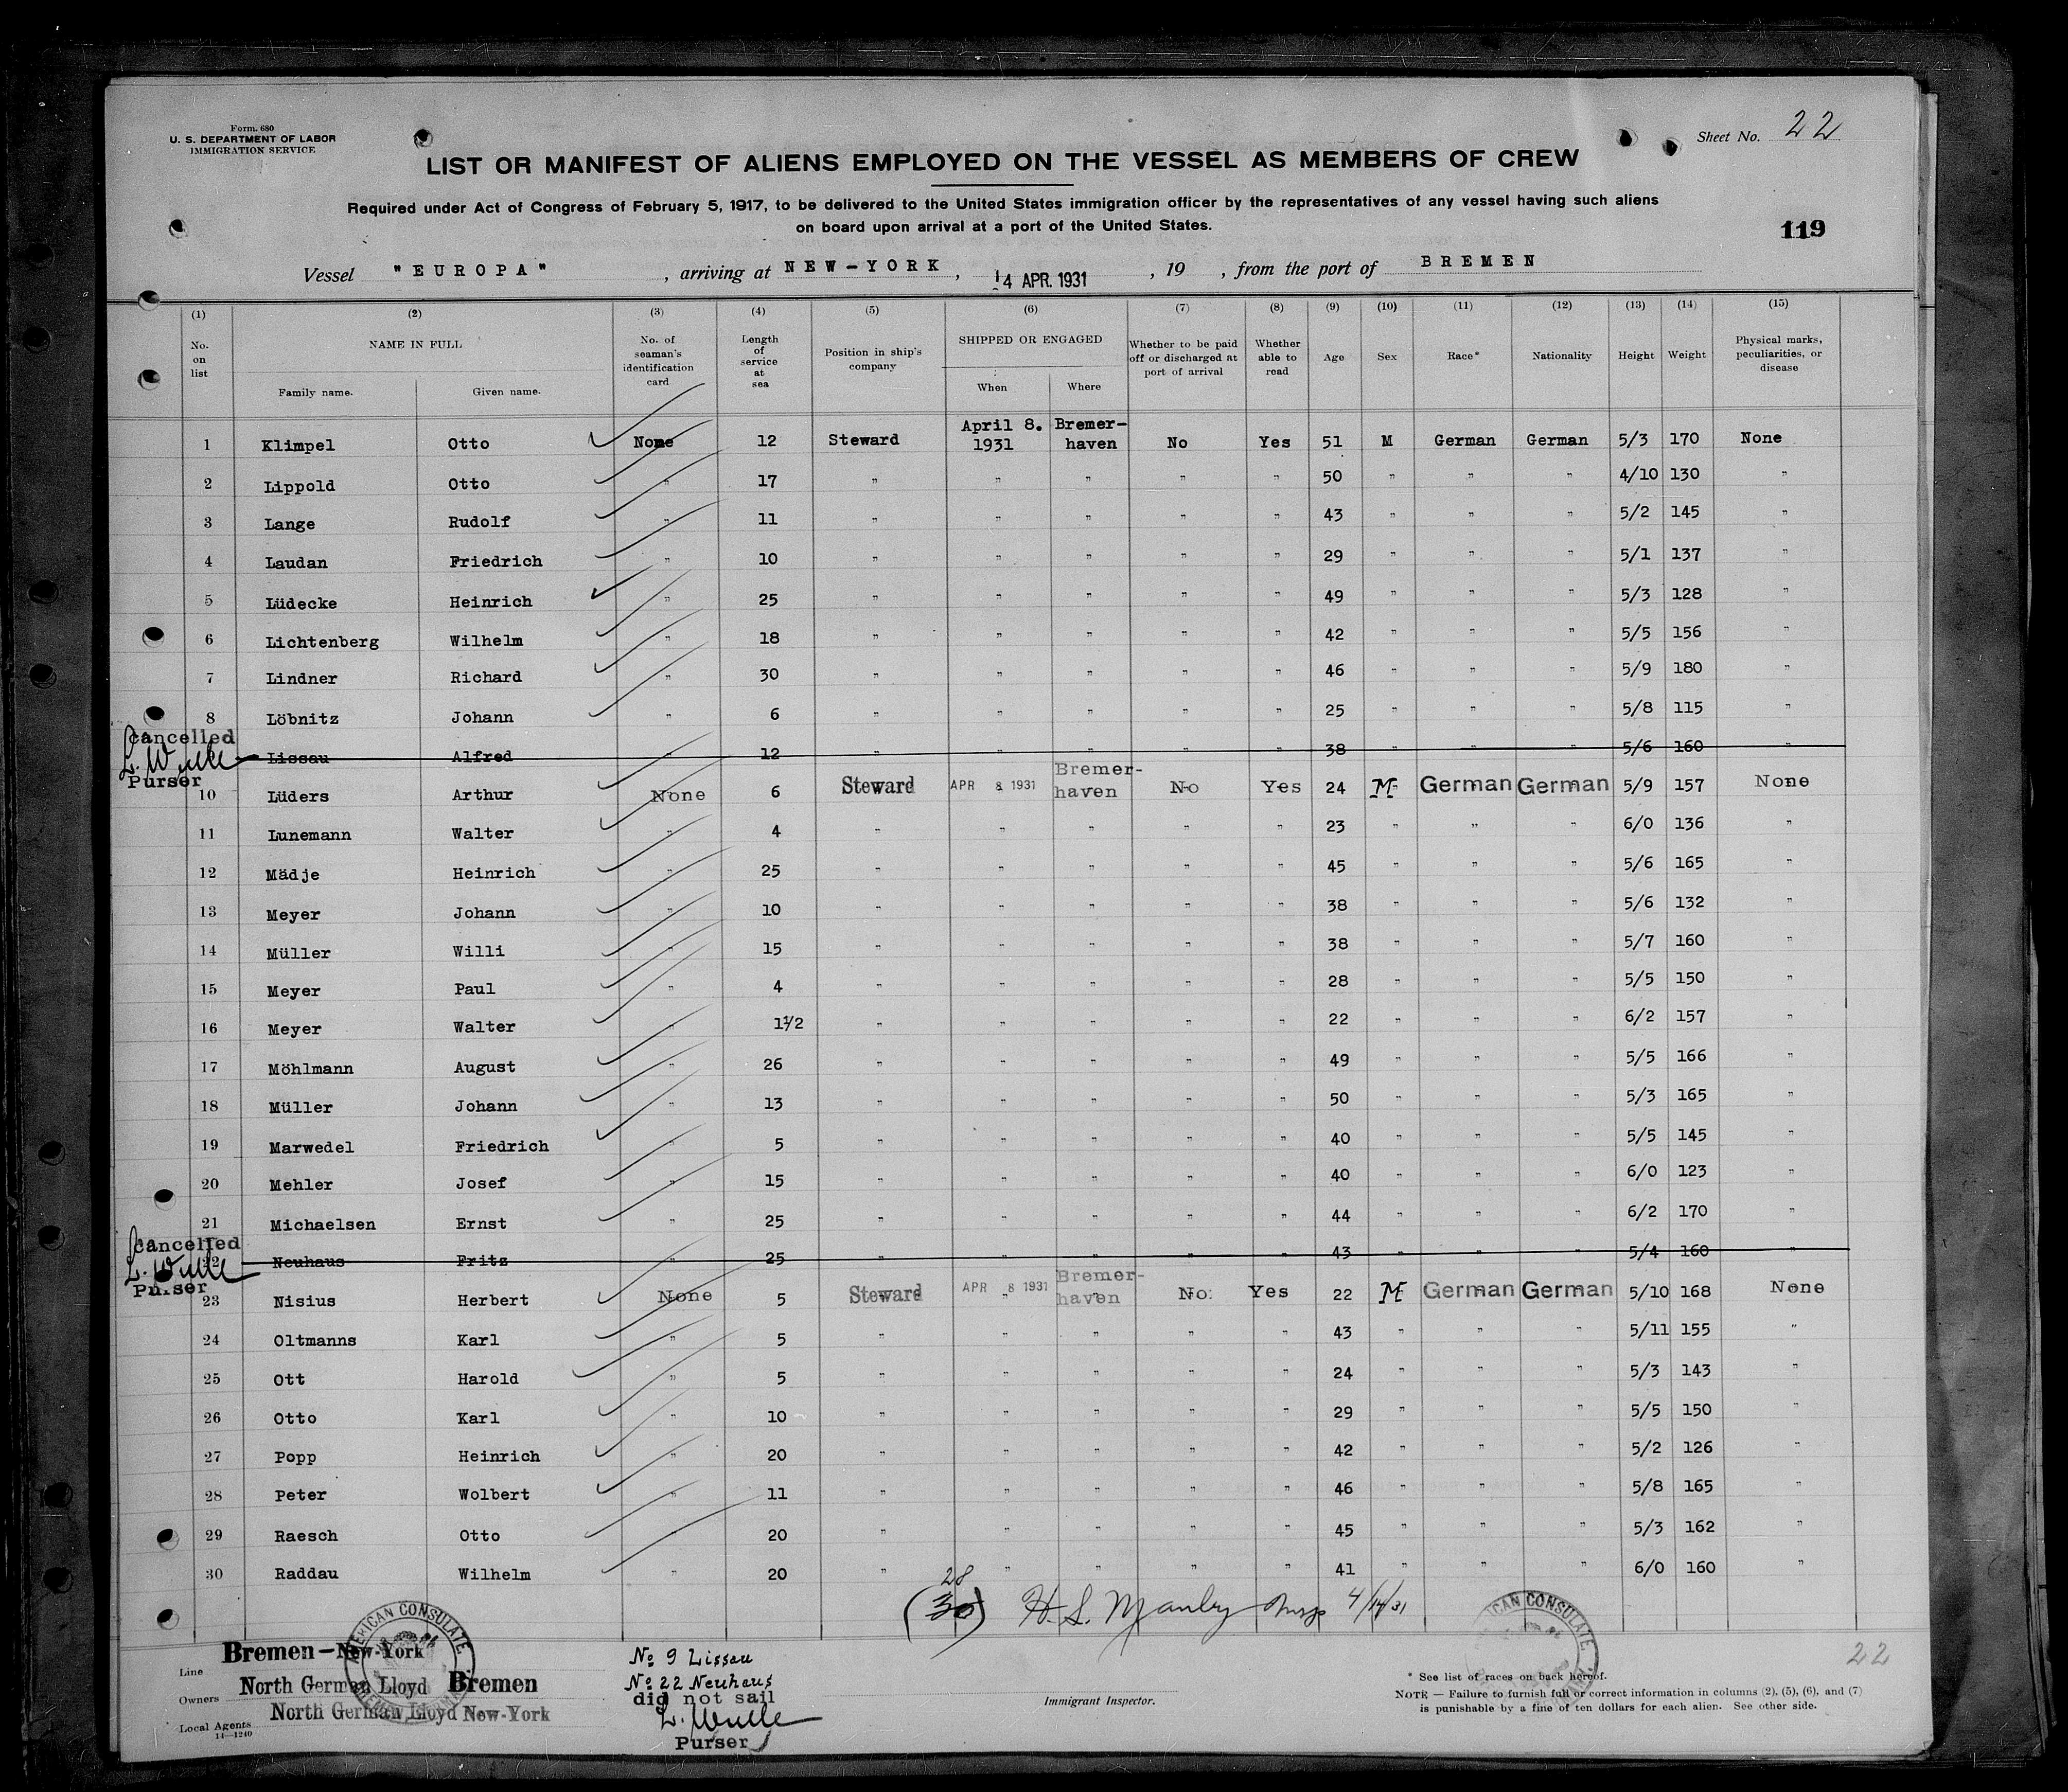 Form. 680
U. S. DEPARTMENT OF LABOR
IMMIGRATION SERVICE
Sheet No. 22
LIST OR MANIFEST OF ALIENS EMPLOYED ON THE VESSEL AS MEMBERS OF CREW
Required under Act of Congress of February 5, 1917, to be delivered to the United States immigration officer by the representatives of any vessel having such aliens
on board upon arrival at a port of the United States.
119
Vessel "EUROPA", arriving at NEW-YORK, 14 APR. 1931, 19 , from the port of BREMEN
(1) (2) (3) (4) (5) (6) (7) (8) (9) (10) (11) (12) (13) (14) (15)
No. on list NAME IN FULL Family name. Given name. No. of seaman's identification card Length of service at sea Position in ship's company SHIPPED OR ENGAGED When Where Whether to be paid off or discharged at port of arrival Whether able to read Age Sex Race* Nationality Height Weight Physical marks, peculiarities, or disease
1 Klimpel Otto None 12 Steward April 8. 1931 Bremer-haven No Yes 51 M German German 5/3 170 None
2 Lippold Otto " 17 " " " " " 50 " " " 4/10 130 "
3 Lange Rudolf " 11 " " " " " 43 " " " 5/2 145 "
4 Laudan Friedrich " 10 " " " " " 29 " " " 5/1 137 "
5 Lüdecke Heinrich " 25 " " " " " 49 " " " 5/3 128 "
6 Lichtenberg Wilhelm " 18 " " " " " 42 " " " 5/5 156 "
7 Lindner Richard " 30 " " " " " 46 " " " 5/9 180 "
8 Löbnitz Johann " 6 " " " " " 25 " " " 5/8 115 "
Cancelled
L. Wulle
Purser
Lissau Alfred 12 " " " " " 38 " " " 5/6 160 "
10 Lüders Arthur None 6 Steward APR 8 1931 Bremer-haven No Yes 24 M German German 5/9 157 None
11 Lunemann Walter " 4 " " " " " 23 " " " 6/0 136 "
12 Mädje Heinrich " 25 " " " " " 45 " " " 5/6 165 "
13 Meyer Johann " 10 " " " " " 38 " " " 5/6 132 "
14 Müller Willi " 15 " " " " " 38 " " " 5/7 160 "
15 Meyer Paul " 4 " " " " " 28 " " " 5/5 150 "
16 Meyer Walter " 1½ " " " " " 22 " " " 6/2 157 "
17 Möhlmann August " 26 " " " " " 49 " " " 5/5 166 "
18 Müller Johann " 13 " " " " " 50 " " " 5/3 165 "
19 Marwedel Friedrich " 5 " " " " " 40 " " " 5/5 145 "
20 Mehler Josef " 15 " " " " " 40 " " " 6/0 123 "
21 Michaelsen Ernst " 25 " " " " " 44 " " " 6/2 170 "
Cancelled
L. Wulle
Purser
22 Neuhaus Fritz 25 " " " " " 43 " " " 5/4 160 "
23 Nisius Herbert None 5 Steward APR 8 1931 Bremer-haven No Yes 22 M German German 5/10 168 None
24 Oltmanns Karl " 5 " " " " " 43 " " " 5/11 155 "
25 Ott Harold " 5 " " " " " 24 " " " 5/3 143 "
26 Otto Karl " 10 " " " " " 29 " " " 5/5 150 "
27 Popp Heinrich " 20 " " " " " 42 " " " 5/2 126 "
28 Peter Wolbert " 11 " " " " " 46 " " " 5/8 165 "
29 Raesch Otto " 20 " " " " " 45 " " " 5/3 162 "
30 Raddau Wilhelm " 20 " " " " " 41 " " " 6/0 160 "
28
(30) H. S. Manley Insp 4/14/31
AMERICAN CONSULATE
AMERICAN CONSULATE
Line Bremen-New-York
Owners North German Lloyd Bremen
Local Agents North German Lloyd New-York
14—1240
No 9 Lissau
No 22 Neuhaus
did not sail
L. Wulle
Purser
Immigrant Inspector.
22
* See list of races on back hereof.
NOTE — Failure to furnish full or correct information in columns (2), (5), (6), and (7)
is punishable by a fine of ten dollars for each alien. See other side.